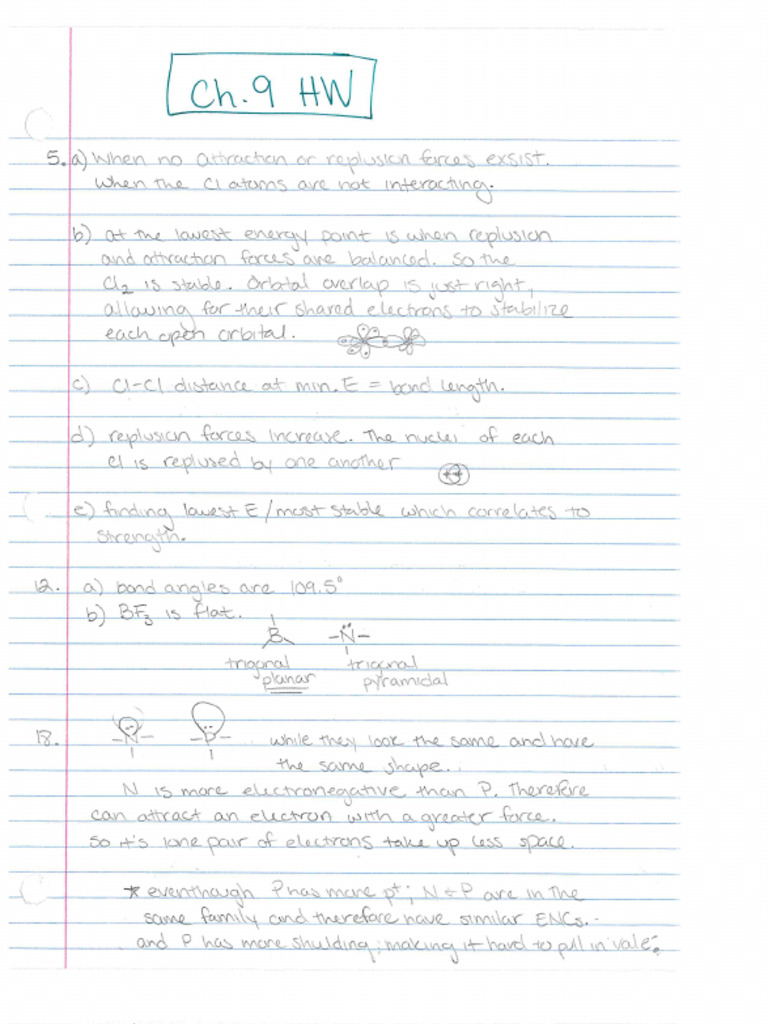 Ch. 9 HW
5. a) When no attraction or replusion forces exsist.
When the Cl atoms are not interacting.
b) at the lowest energy point is when replusion
and attraction forces are balanced. So the
Cl₂ is stable. Orbital overlap is just right,
allowing for their shared electrons to stabilize
each open orbital.
c) Cl-Cl distance at min. E = bond length.
d) replusion forces increase. The nuclei of each
el is replused by one another
++
e) finding lowest E/most stable which correlates to
strength.
12. a) bond angles are 109.5°
b) BF₃ is flat.
B -N-
trigonal trigonal
planar pyramidal
18. -N- -P- while they look the same and have
the same shape...
N is more electronegative than P. Therefore
can attract an electron with a greater force.
So it's lone pair of electrons take up less space.
* eventhough P has more p⁺; N + P are in the
same family and therefore have similar ENCs..
and P has more shulding; making it hard to pull in vale⁻.